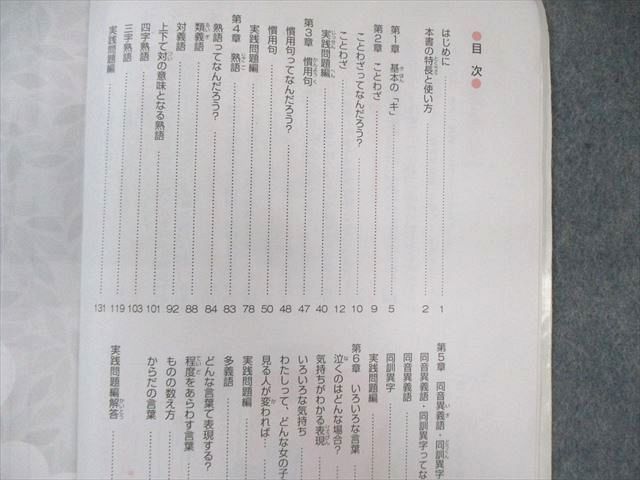 目次
はじめに 1
本書の特長と使い方 2
第1章 基本の「キ」 5
第2章 ことわざ 9
ことわざってなんだろう? 10
ことわざ 12
実践問題編 40
第3章 慣用句 47
慣用句ってなんだろう? 48
慣用句 50
実践問題編 78
第4章 熟語 83
熟語ってなんだろう? 84
類義語 88
対義語 92
上下で対の意味となる熟語 101
四字熟語 103
三字熟語 119
実践問題編 131
第5章 同音異義語・同訓異字
同音異義語・同訓異字ってな
同音異義語
同訓異字
実践問題編
第6章 いろいろな言葉
泣くのはどんな場合?
気持ちがわかる表現
いろいろな気持ち
わたしって、どんな女の子
見る人が変われば
実践問題編
多義語
どんな言葉で表現する?
程度をあらわす言葉
ものの数え方
からだの言葉
実践問題編解答